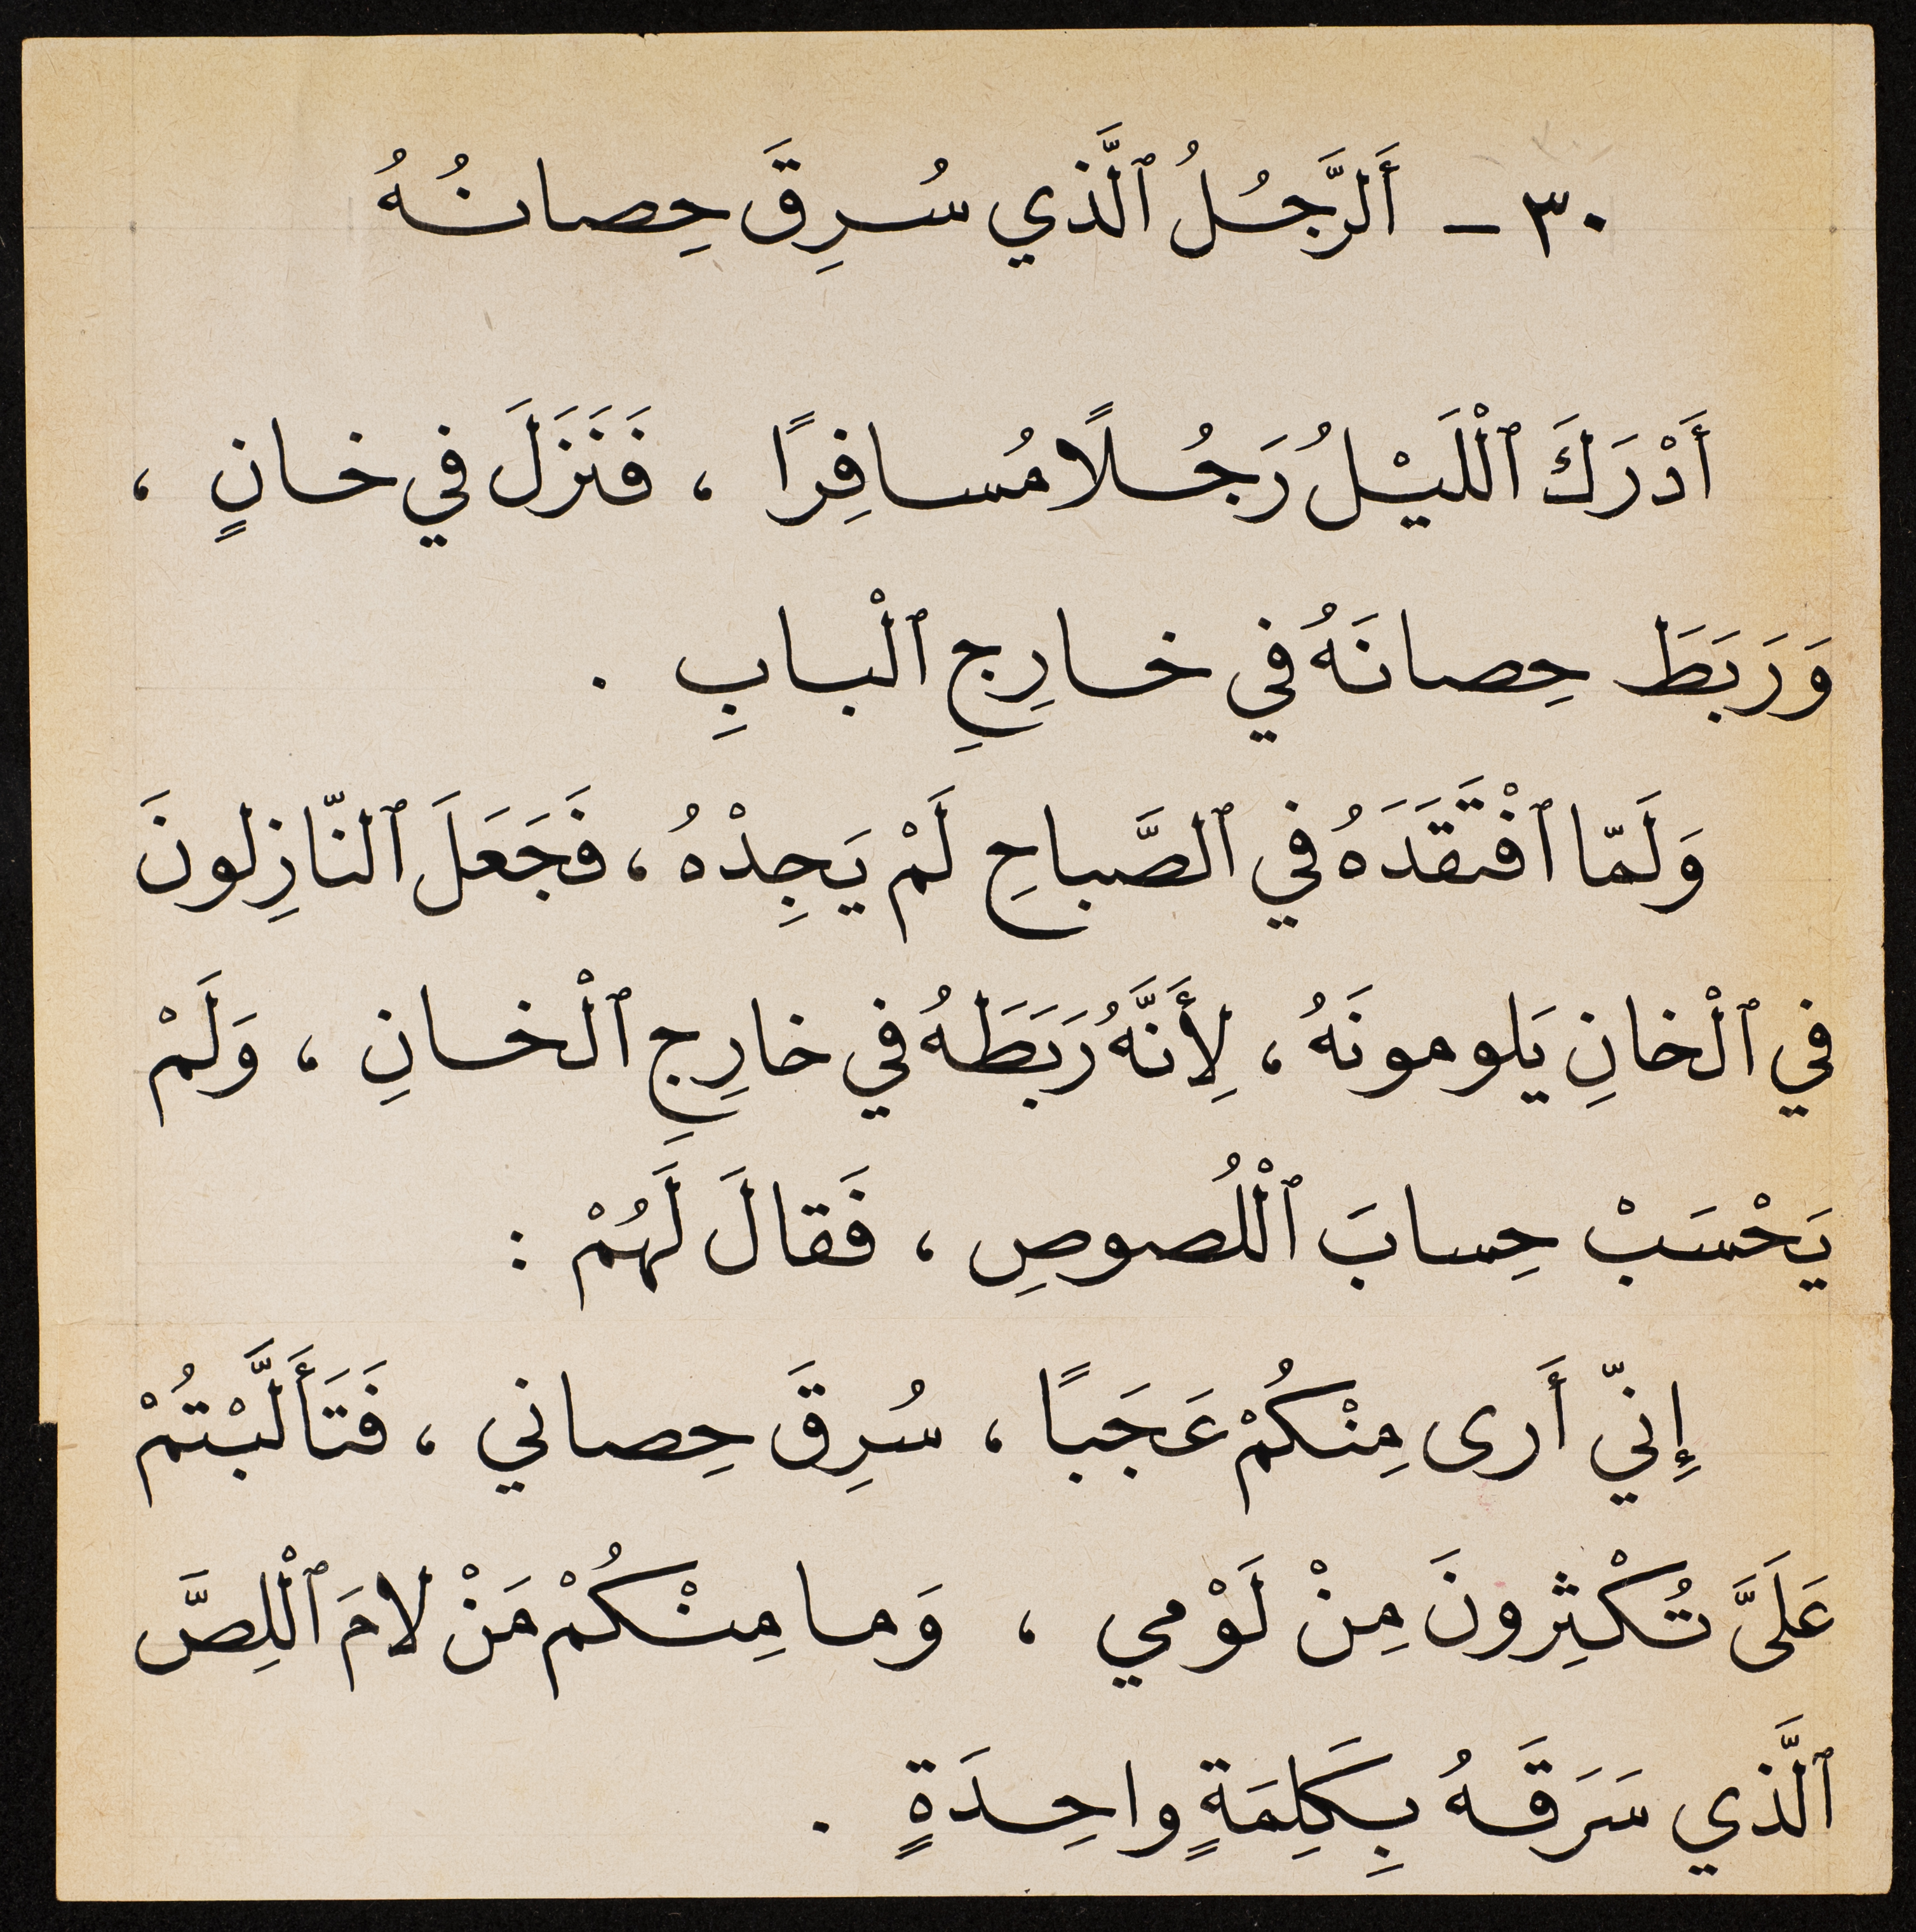 ٣٠ – أَلرَّجُلُ ٱلَّذي سُرِقَ حِصانُهُ
أَدْرَكَ ٱلْلَيْلُ رَجُلًا مُسافِرًا ، فَنَزَلَ في خانٍ ،
وَرَبَطَ حِصانَهُ في خارِجِ ٱلْبابِ .
وَلَمّا ٱفْتَقَدَهُ في ٱلصَّباحِ لَمْ يَجِدْهُ ، فَجَعَلَ ٱلنّازِلونَ
في ٱلْخانِ يَلومونَهُ ، لِأَنَّهُ رَبَطَهُ في خارِجِ ٱلْخانِ ، وَلَمْ
يَحْسَبْ حِسابَ ٱلْلُصوصِ ، فَقالَ لَهُمْ :
إِنّي أَرى مِنْكُمْ عَجَبًا ، سُرِقَ حِصاني ، فَتَأَلَّبْتُمْ
عَلَيَّ تُكْثِرونَ مِنْ لَوْمي ، وَما مِنْكُمْ مَنْ لامَ ٱلْلِصَّ
ٱلَّذي سَرَقَهُ بِكَلِمَةٍ واحِدَةٍ .